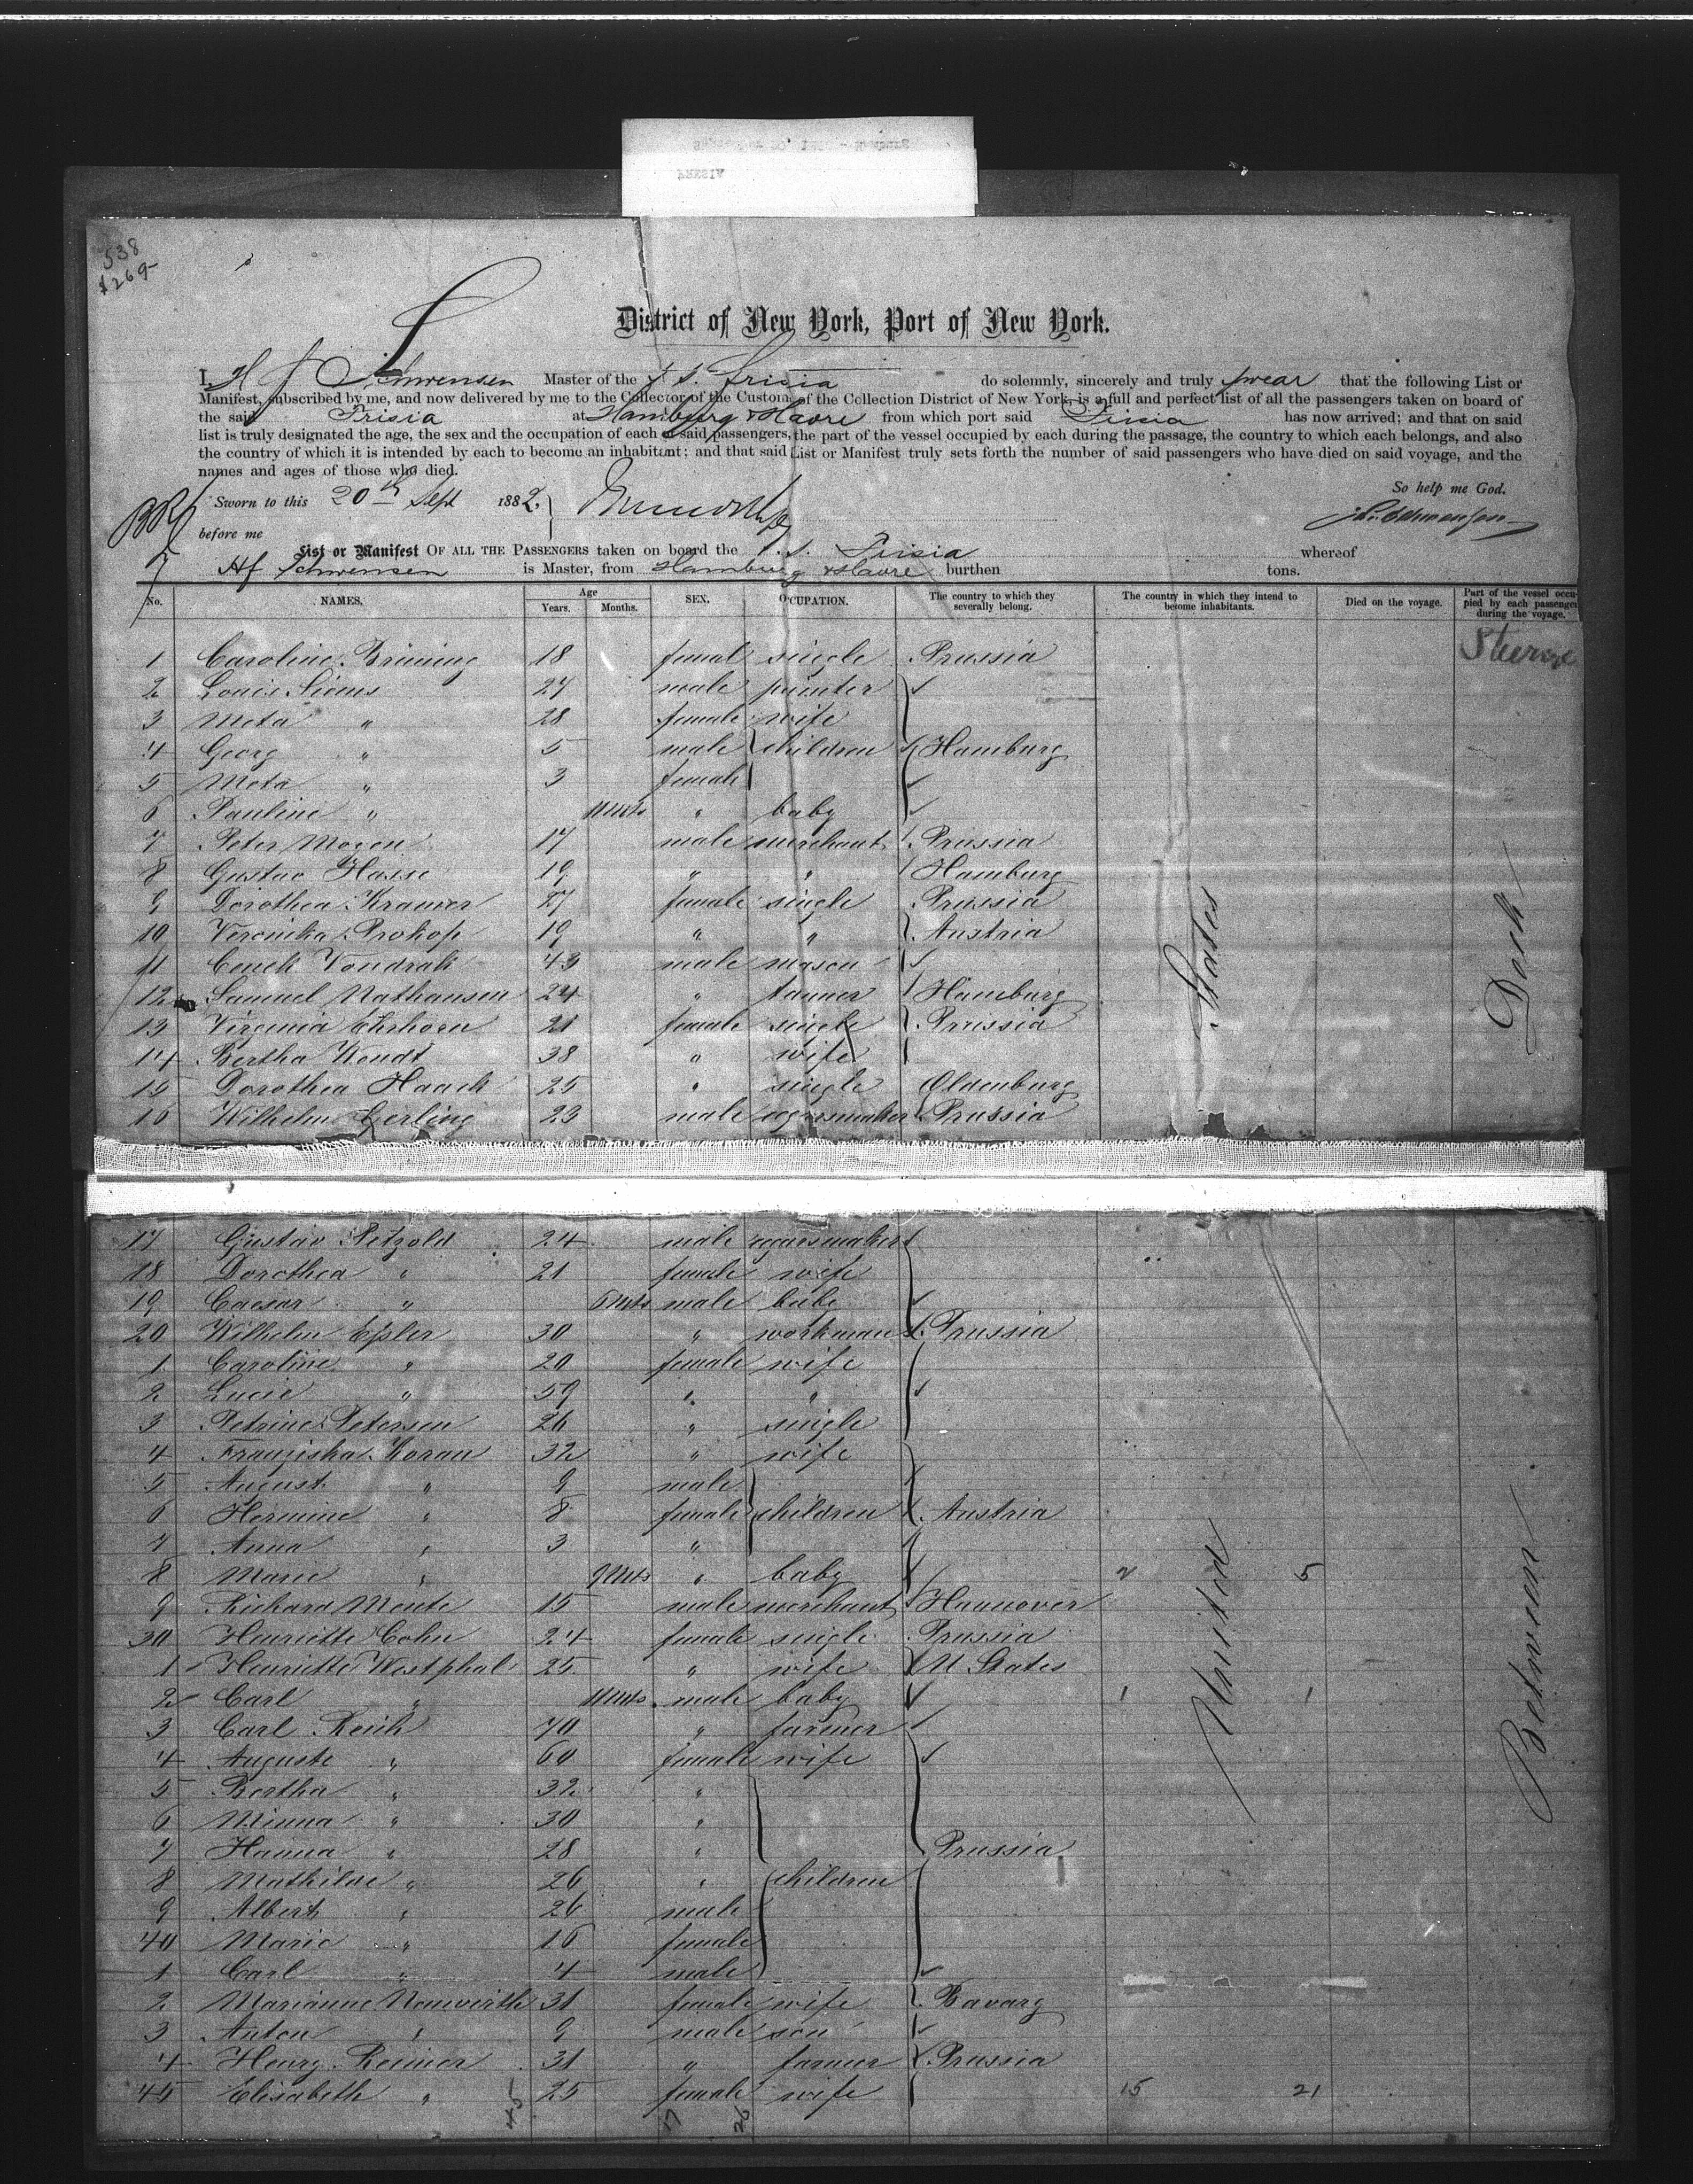 538
1269
District of New York, Port of New York.
I, H F Schwensen Master of the S. S. Frisia do solemnly, sincerely and truly swear that the following List or
Manifest, subscribed by me, and now delivered by me to the Collector of the Customs of the Collection District of New York, is a full and perfect list of all the passengers taken on board of
the said Frisia at Hamburg & Havre from which port said Frisia has now arrived; and that on said
list is truly designated the age, the sex and the occupation of each of said passengers, the part of the vessel occupied by each during the passage, the country to which each belongs, and also
the country of which it is intended by each to become an inhabitant; and that said List or Manifest truly sets forth the number of said passengers who have died on said voyage, and the
names and ages of those who died.
So help me God.
Sworn to this 20th Sept 1882.
before me
List or Manifest OF ALL THE PASSENGERS taken on board the S. S. Frisia whereof
HF Schwensen is Master, from Hamburg & Havre burthen tons.
No. NAMES. Age Years. Months. SEX. OCCUPATION. The country to which they severally belong. The country in which they intend to become inhabitants. Died on the voyage. Part of the vessel occupied by each passenger during the voyage.
Steerage
1 Caroline Brüning 18 female single Prussia
2 Louis Siems 27 male painter
3 Meta " 28 female wife
4 Georg " 5 male children Hamburg
5 Meta " 3 female
6 Pauline " 11 mts " baby
7 Peter Mogen 17 male merchant Prussia
8 Gustav Hasse 19 " " Hamburg
9 Dorothea Kramer 27 female single Prussia
10 Veronika Prokop 19 " " Austria
11 Cenek Vondrak 43 male mason
12 Samuel Nathansen 24 " tanner Hamburg
13 Virginia Ehrhorn 21 female single Prussia
14 Bertha Wendt 38 " wife
15 Dorothea Haack 25 " single Oldenburg
16 Wilhelm Gerling 23 male cigarsmaker Prussia
17 Gustav Petzold 24 male cigarsmaker
18 Dorothea " 21 female wife
19 Caesar " 6 mts male baby
20 Wilhelm Epler 30 " workman Prussia
1 Caroline " 20 female wife
2 Lucie " 59 " "
3 Petrine Petersen 26 " single
4 Franziska Koran 32 " wife
5 August " 9 male
6 Hermine " 8 female children Austria
7 Anna " 3 "
8 Marie " 9 mts " baby 2 5
9 Richard Mente 15 male merchant Hannover
30 Henriette Cohn 24 female single Prussia
1 Henriette Westphal 25 " wife U States
2 Carl " 11 mts male baby 1 1
3 Carl Reich 70 " farmer
4 Auguste " 60 female wife
5 Bertha " 32 "
6 Minna " 30 "
7 Hanna " 28 " Prussia
8 Mathilde " 26 " children
9 Albert " 26 male
40 Marie " 16 female
1 Carl " 4 male
2 Marianne Neuwirth 31 female wife Bavarg
3 Anton " 9 male son
4 Henry Reimer 31 " farmer Prussia
45 Elisabeth " 25 female wife 15 21
45 17 26
United States
Between Deck